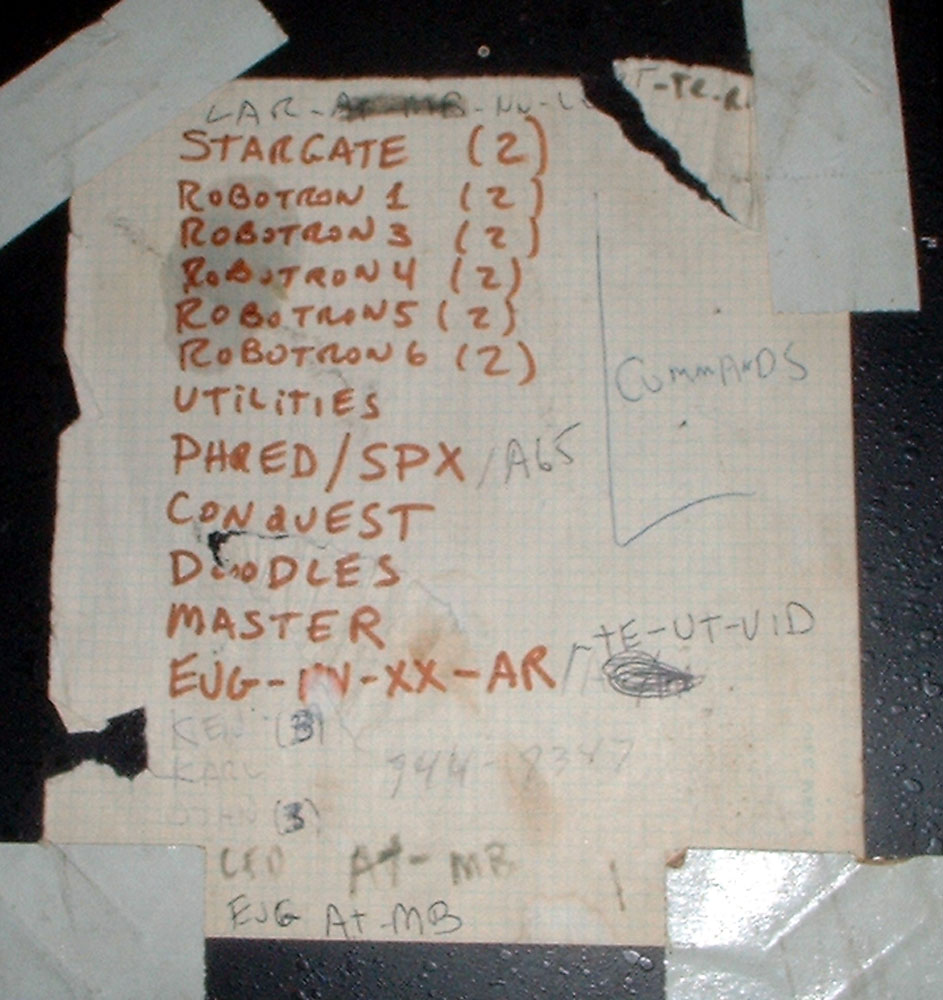 LAR-AT-MB-NN-L T-TR-R
STARGATE (2)
ROBOTRON 1 (2)
ROBOTRON 3 (2)
ROBOTRON 4 (2)
ROBOTRON 5 (2)
ROBOTRON 6 (2)
COMMANDS
UTiLiTiES
PHRED/SPX /A65
CONQUEST
DOODLES
MASTER
EJG- -XX-AR -TE-UT-VID
KEN (3)
KARL 944-8347
(3)
LED At-MB
EJG At-MB